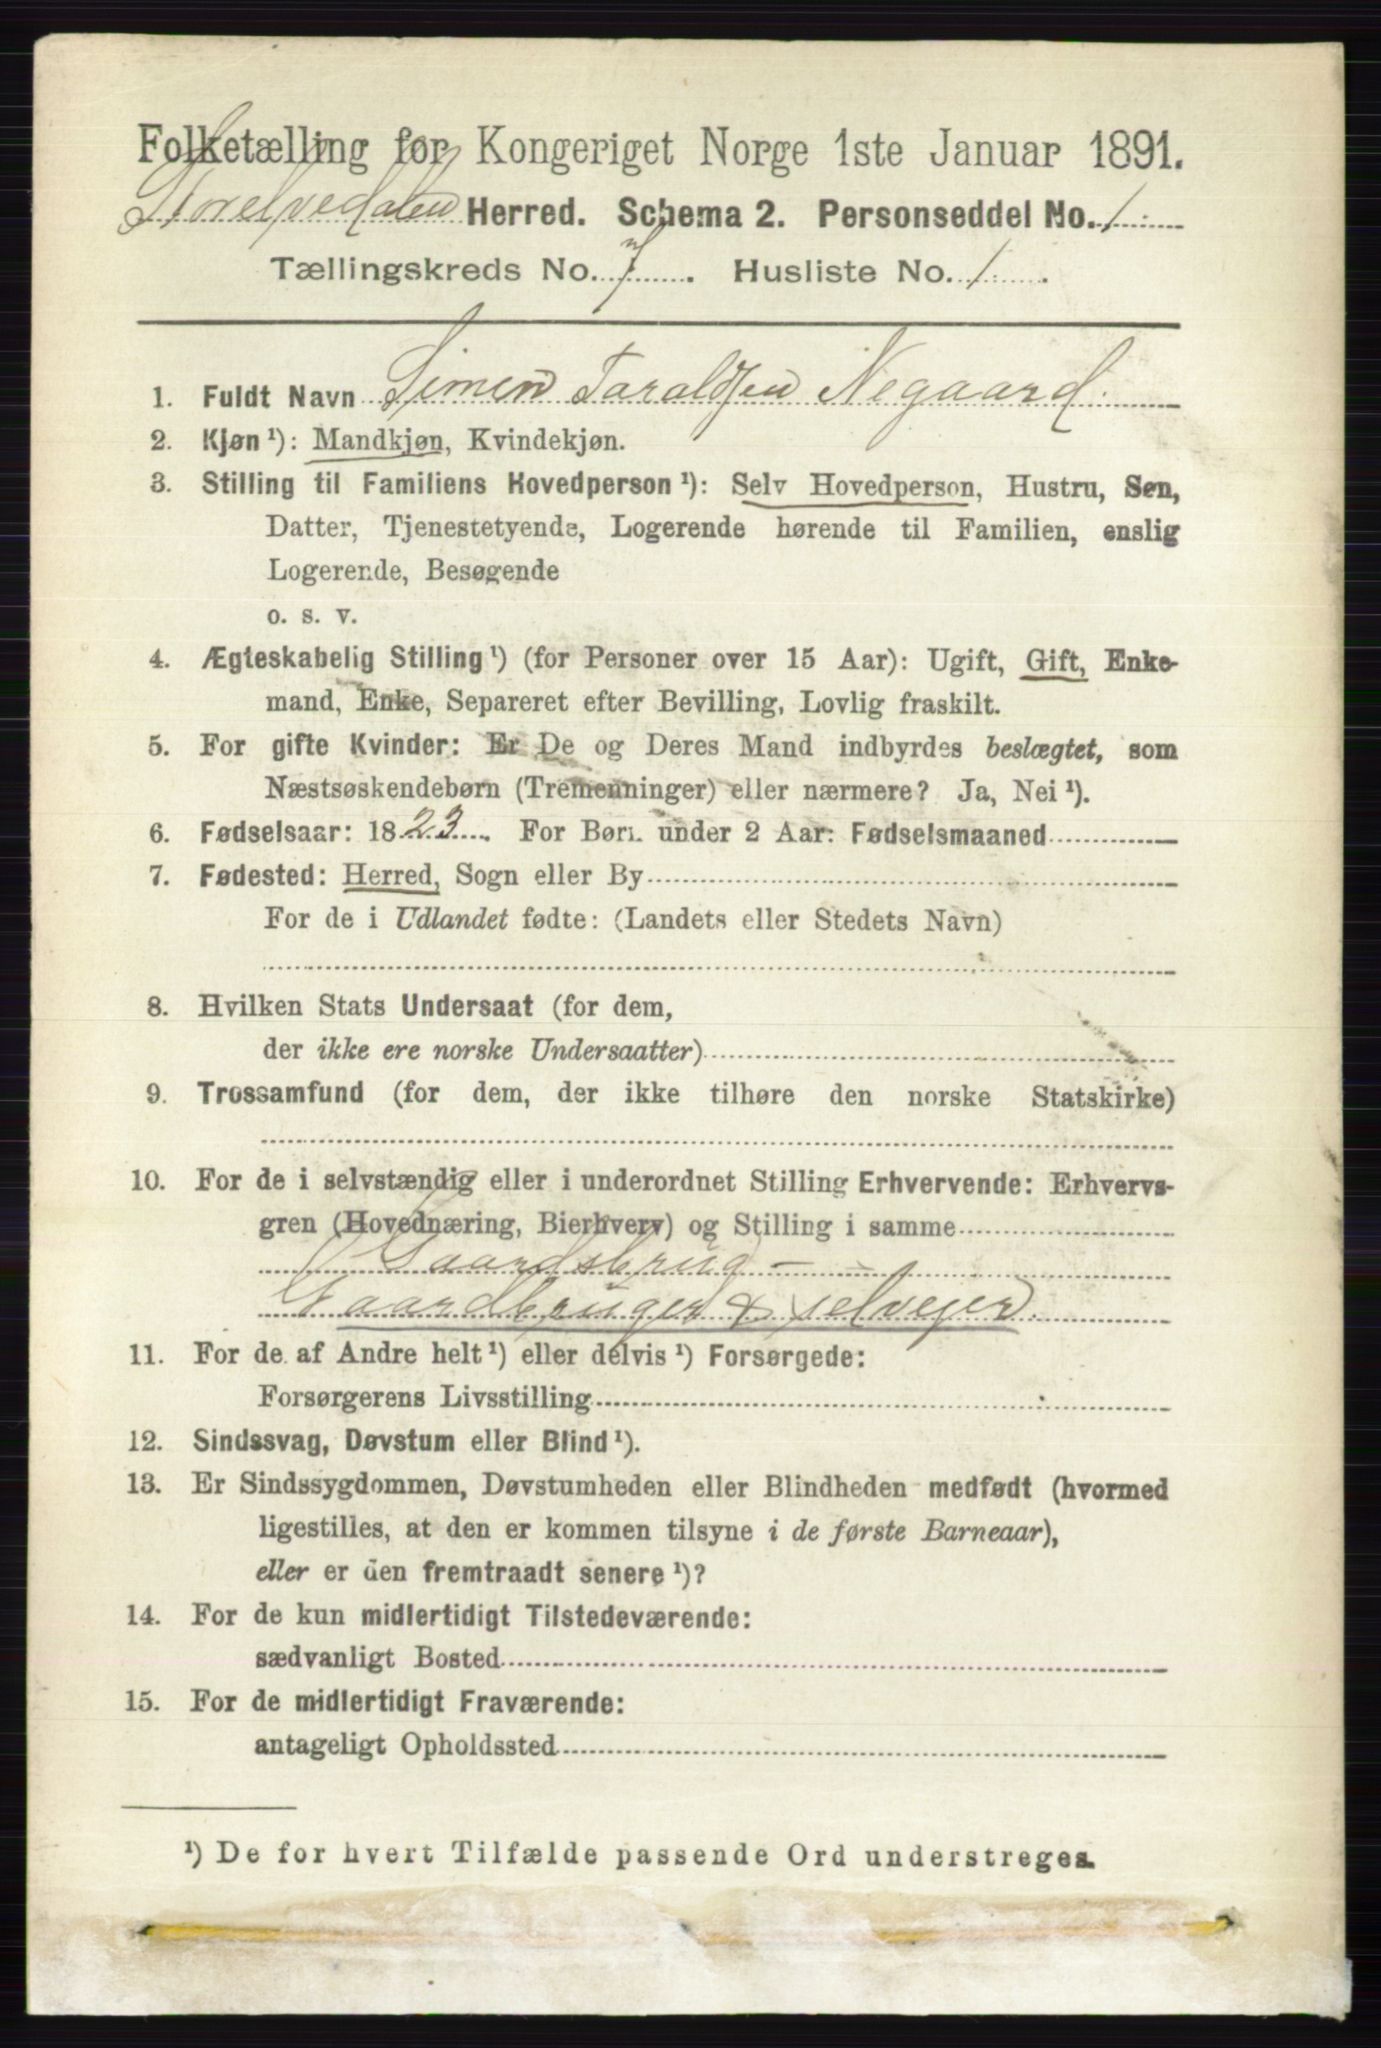 Folketælling for Kongeriget Norge 1ste Januar 1891.
Storelvedalen Herred. Schema 2. Personseddel No. 1.
Tællingskreds No. 7. Husliste No. 1.
1. Fuldt Navn Simen Taraldsen Negaard.
2. Kjøn ¹): Mandkjøn, Kvindekjøn.
3. Stilling til Familiens Hovedperson ¹): Selv Hovedperson, Hustru, Søn,
Datter, Tjenestetyende, Logerende hørende til Familien, enslig
Logerende, Besøgende
o. s. v.
4. Ægteskabelig Stilling ¹) (for Personer over 15 Aar): Ugift, Gift, Enke-
mand, Enke, Separeret efter Bevilling, Lovlig fraskilt.
5. For gifte Kvinder: Er De og Deres Mand indbyrdes beslægtet, som
Næstsøskendebørn (Tremenninger) eller nærmere? Ja, Nei ¹).
6. Fødselsaar: 1823. For Børn under 2 Aar: Fødselsmaaned
7. Fødested: Herred, Sogn eller By
For de i Udlandet fødte: (Landets eller Stedets Navn)
8. Hvilken Stats Undersaat (for dem,
der ikke ere norske Undersaatter)
9. Trossamfund (for dem, der ikke tilhøre den norske Statskirke)
10. For de i selvstændig eller i underordnet Stilling Erhvervende: Erhvervs-
gren (Hovednæring, Bierhverv) og Stilling i samme
Gaardsbrug –
Gaardbruger & selveier.
11. For de af Andre helt ¹) eller delvis ¹) Forsørgede:
Forsørgerens Livsstilling
12. Sindssvag, Døvstum eller Blind ¹).
13. Er Sindssygdommen, Døvstumheden eller Blindheden medfødt (hvormed
ligestilles, at den er kommen tilsyne i de første Barneaar),
eller er den fremtraadt senere ¹)?
14. For de kun midlertidigt Tilstedeværende:
sædvanligt Bosted
15. For de midlertidigt Fraværende:
antageligt Opholdssted
¹) De for hvert Tilfælde passende Ord understreges.